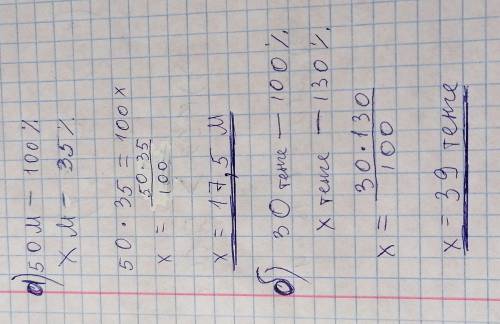 а) 50 м — 100%
х м — 35%
50 · 35 = 100х
х = 50·35/100
х = 17,5 м
б) 30 тенге — 100%
х тенге — 130%
х = 30·130/100
х = 39 тенге